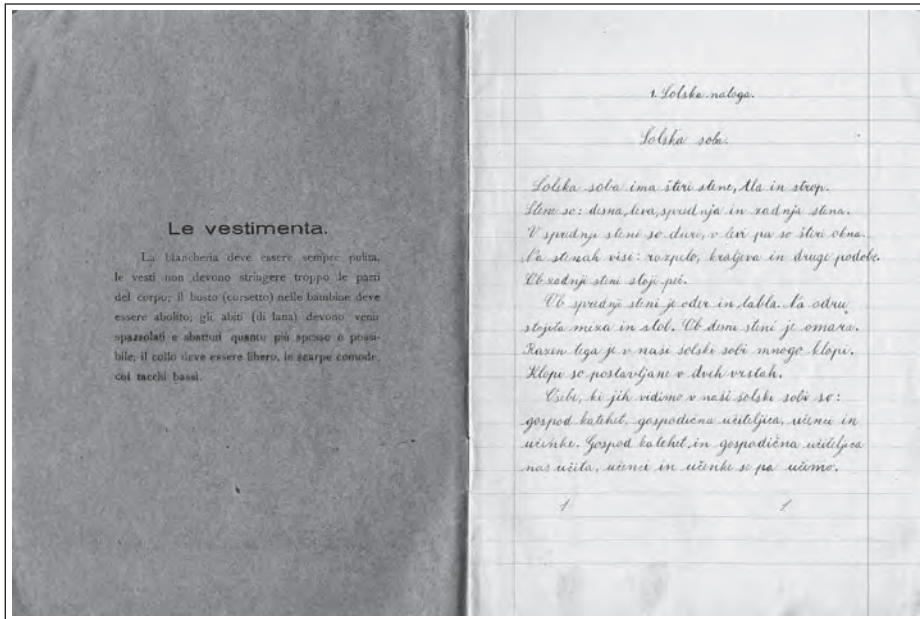 Le vestimenta.
La biancheria deve essere sempre pulita,
le vesti non devono stringere troppo le parti
del corpo; il busto (corsetto) nelle bambine deve
essere abolito; gli abiti (di lana) devono venir
spazzolati e sbattuti quanto più spesso è possi-
bile; il collo deve essere libero, le scarpe comode,
coi tacchi bassi.
1. Šolska naloga.
Šolska soba.
Šolska soba ima štiri stene, tla in strop.
Stene so: desna, leva, sprednja in zadnja stena.
V sprednji steni so duri, v levi pa so štiri okna.
Na stenah visi: razpelo, kraljeva in druge podobe.
Ob zadnji steni stoji peč.
Ob sprednji steni je oder in tabla. Na odru
stojita miza in stol. Ob desni steni je omara.
Razen tega je v naši šolski sobi mnogo klopi.
Klopi so postavljene v dveh vrstah.
Osebe, ki jih vidimo v naši šolski sobi so:
gospod katehet, gospodična učiteljica, učenci in
učenke. Gospod katehet in gospodična učiteljica
nas učita, učenci in učenke se pa učimo.
1 1